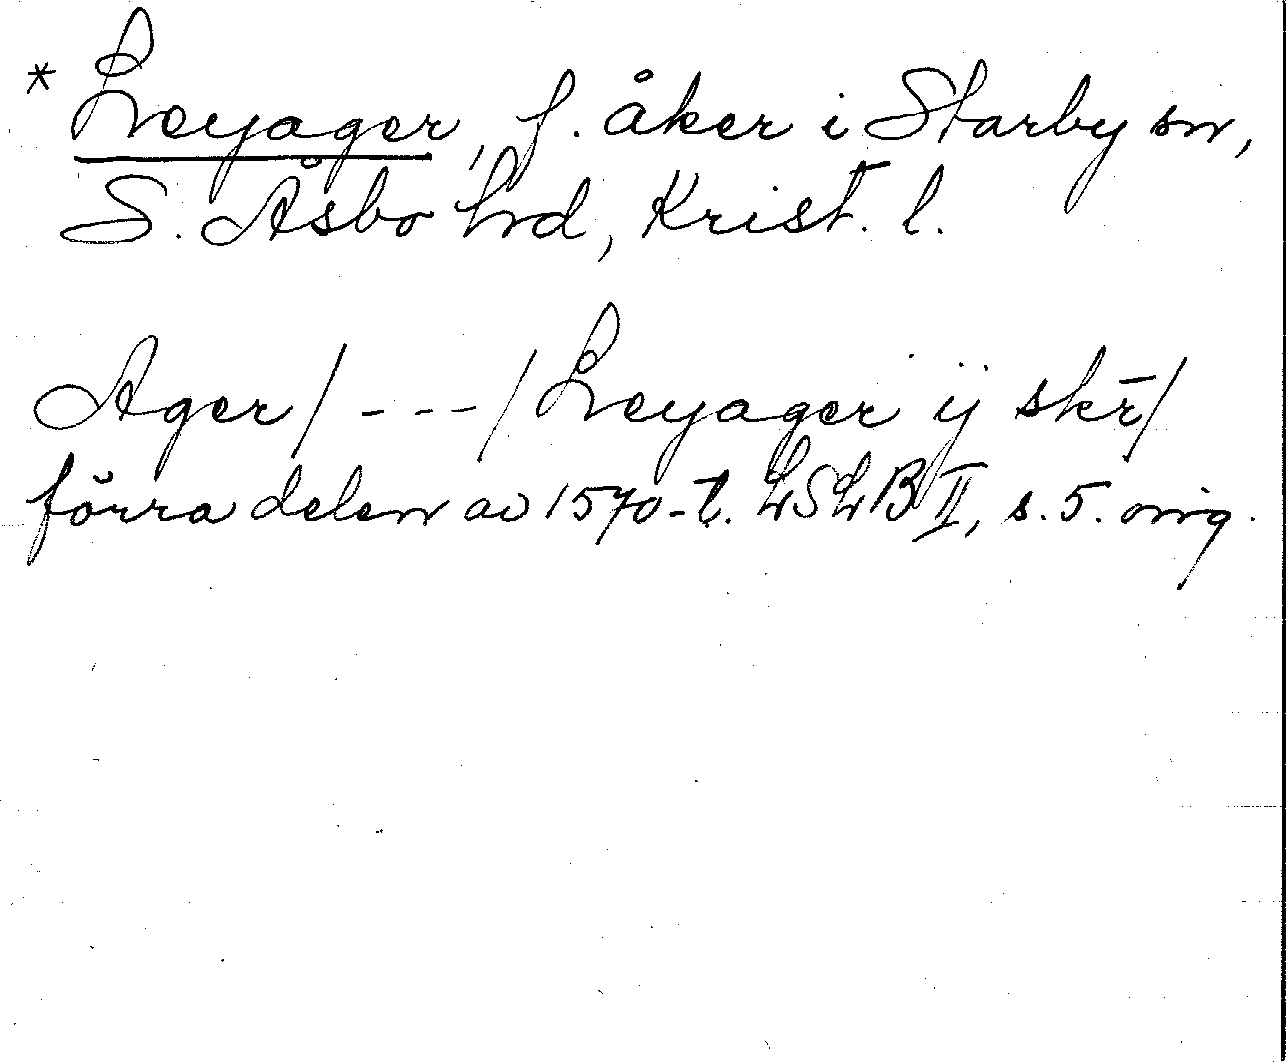 * Leyager, f. åker i Starby sn,
S. Åsbo hd, Krist. l.
Ager / - - - / Leyager ij skr̄ /
förra delen av 1570-t. LSLB II, s. 5. orig.